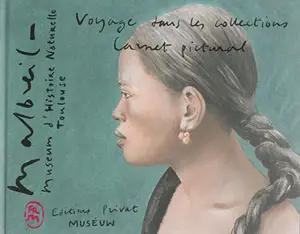 Voyage dans les collections
Carnet pictural
Malbreil
Museum d'Histoire Naturelle
Toulouse
Editions Privat
MUSÉUM